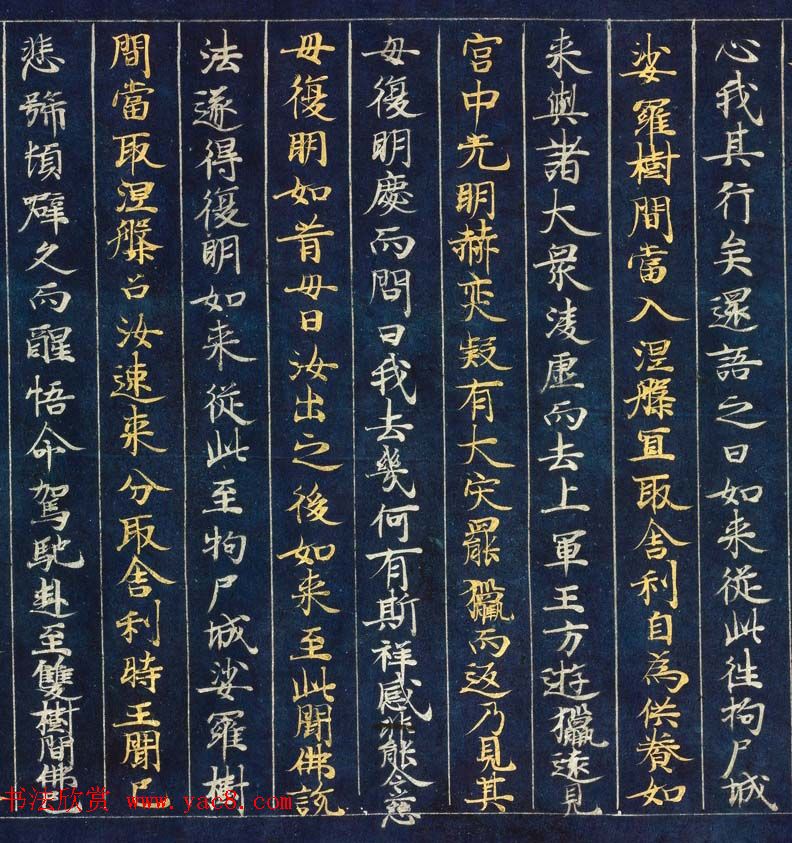 心我其行矣還語之曰如来從此往拘尸城
娑羅樹間當入涅槃宜取舍利自為供養如
来與諸大衆淩虛而去上軍王方遊獵遠見
宮中光明赫奕疑有大灾罷獵而返乃見其
母復明慶而問曰我去幾何有斯祥感能令慈
母復明如昔母曰汝出之後如来至此聞佛說
法遂得復明如来從此至拘尸城娑羅樹
間當取涅槃召汝速来分取舍利時王聞已
悲號頓躃久而醒悟命駕馳赴至雙樹間佛已
书法欣赏 www.yac8.com